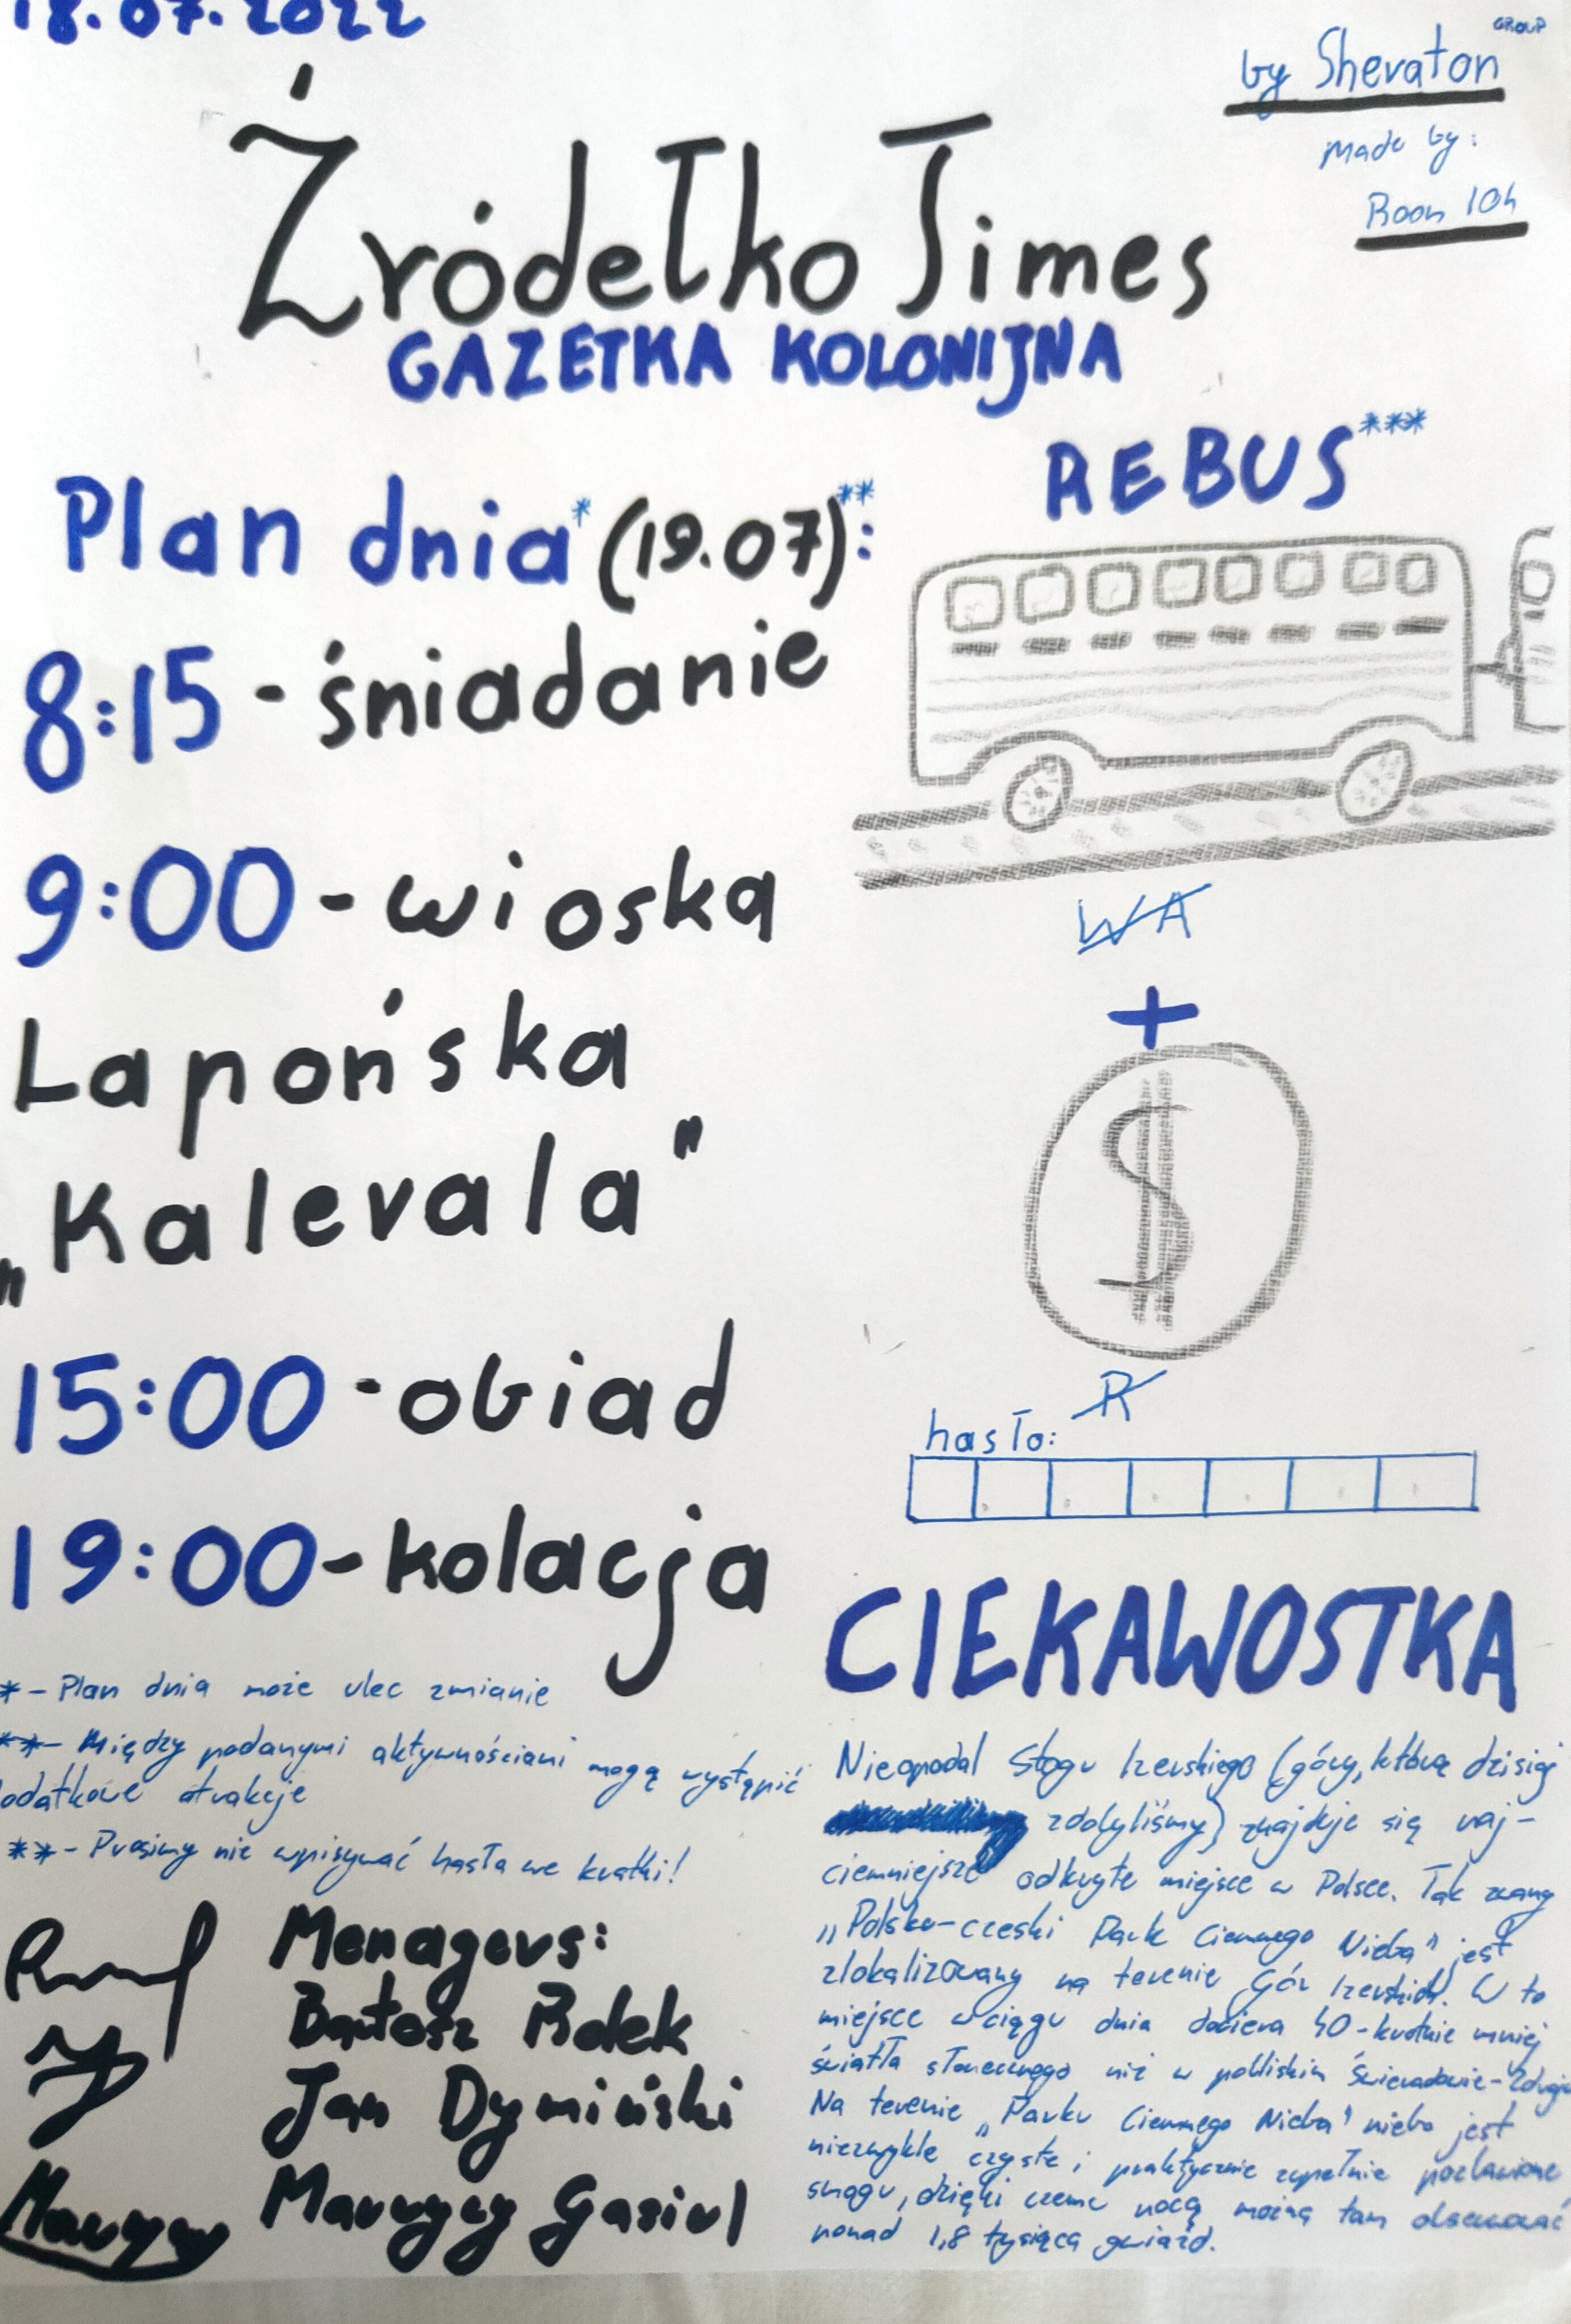 18.07.2022
by Sheraton GROUP
Made by:
Room 104
Źródełko Times
GAZETKA KOLONIJNA
Plan dnia* (19.07)**:
8:15 - śniadanie
9:00 - wioska
Lapońska
„Kalevala"
15:00 - obiad
19:00 - kolacja
* - Plan dnia może ulec zmianie
** - Między podanymi aktywnościami mogą wystąpić
odatkowe atrakcje
** - Prosimy nie wpisywać hasła we kratki!
Menagers:
Bartosz
Jan Dymiński
Maurycy
Maurycy
REBUS***
WA
+
$
R
hasło:
CIEKAWOSTKA
Nieopodal Stogu Izerskiego (góry, którą dzisiaj
zdobyliśmy) znajduje się naj-
ciemniejsze odkryte miejsce w Polsce. Tak zwany
„Polsko-czeski Park Ciemnego Nieba" jest
zlokalizowany na terenie Gór Izerskich. W to
miejsce w ciągu dnia dociera 40-krotnie mniej
światła słonecznego niż w pobliskim Świeradowie-Zdroju
Na terenie „Parku Ciemnego Nieba" niebo jest
niezwykle czyste i praktycznie zupełnie pozbawione
smogu, dzięki czemu nocą można tam obserwować
ponad 1,8 tysiąca gwiazd.